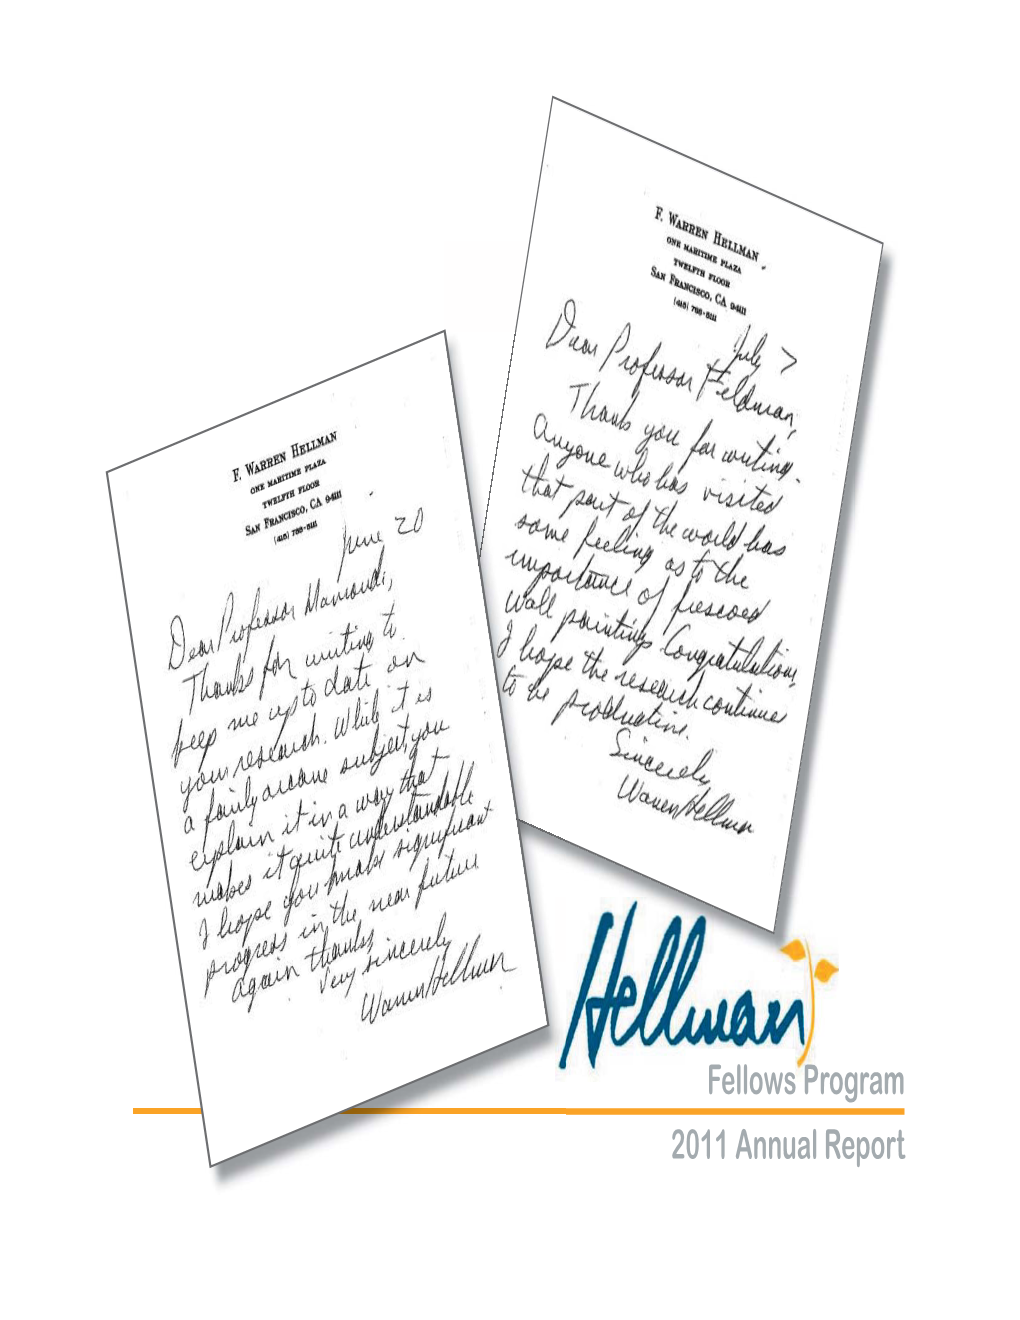 F. WARREN HELLMAN
ONE MARITIME PLAZA
TWELFTH FLOOR
SAN FRANCISCO, CA 94111
(415) 788-5111
July 7
Dear Professor Feldman,
Thank you for writing.
Anyone who has visited
that part of the world has
some feeling as to the
importance of frescoed
wall paintings. Congratulations,
I hope the research continues
to be productive.
Sincerely,
Warren Hellman
F. WARREN HELLMAN
ONE MARITIME PLAZA
TWELFTH FLOOR
SAN FRANCISCO, CA 94111
(415) 788-5111
June 20
Dear Professor
Thanks for writing to
keep me up to date on
your research. While it is
a fairly arcane subject, you
explain it in a way that
makes it quite understandable
I hope you make significant
progress in the near future
again thanks
Very sincerely
Warren Hellman
Hellman
Fellows Program
2011 Annual Report